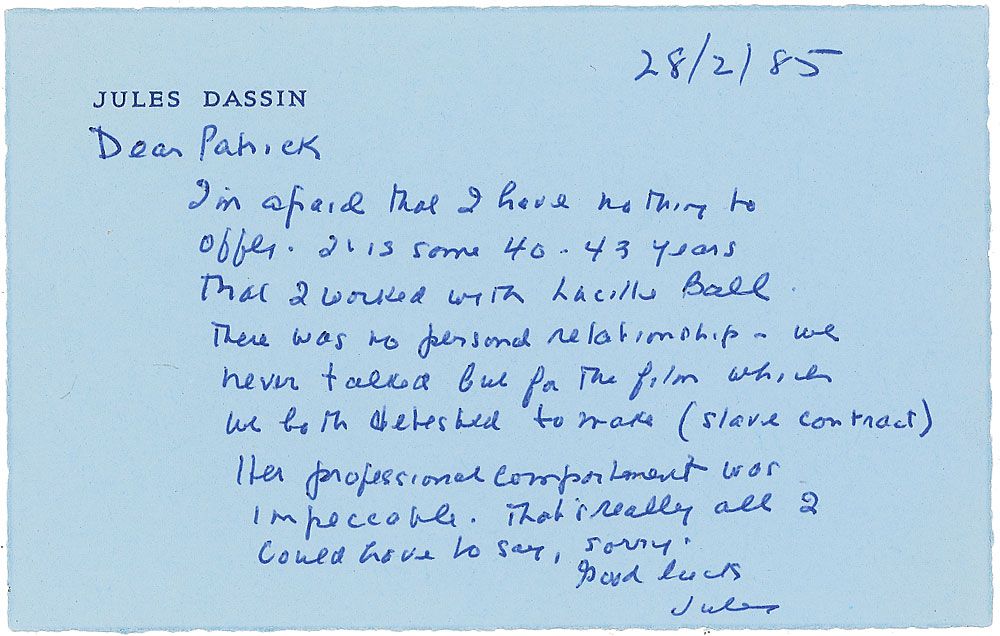 28/2/85
JULES DASSIN
Dear Patrick
I'm afraid that I have nothing to
offer. It is some 40-43 years
that I worked with Lucille Ball.
There was no personal relationship - we
never talked but for the film which
we both detested to make (slave contract)
Her professional comportment was
impeccable. That's really all I
could have to say, sorry.
Good luck
Jules